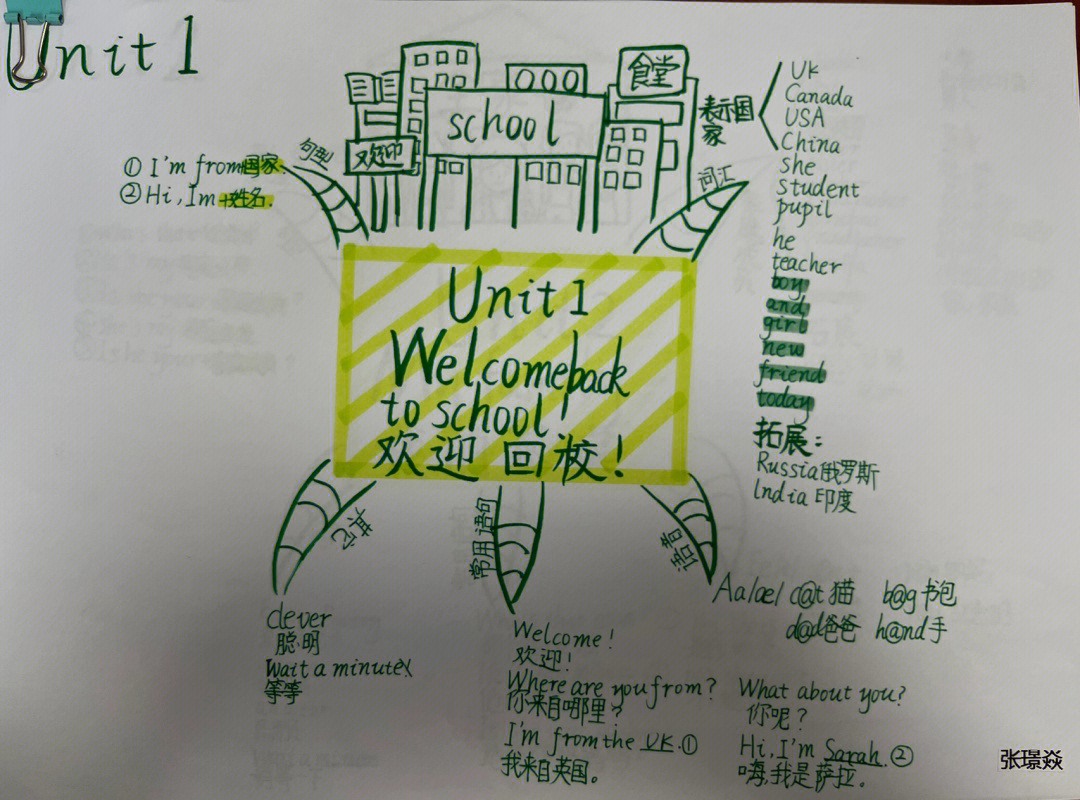 Unit 1
食堂
school
欢迎
句型
① I'm from国家.
② Hi, Im +姓名.
词汇
表示国家
UK
Canada
USA
China
she
student
pupil
he
teacher
boy
and
girl
new
friend
today
拓展:
Russia俄罗斯
India 印度
Unit 1
Welcome back
to school!
欢迎 回校!
其它
clever
聪明
Wait a minute
等等
常用语句
Welcome!
欢迎!
Where are you from?
你来自哪里?
I'm from the UK.①
我来自英国。
What about you?
你呢?
Hi, I'm Sarah.②
嗨,我是萨拉.
语音
Aa/æ/ cat 猫 bag书包
dad爸爸 hand手
张璟焱